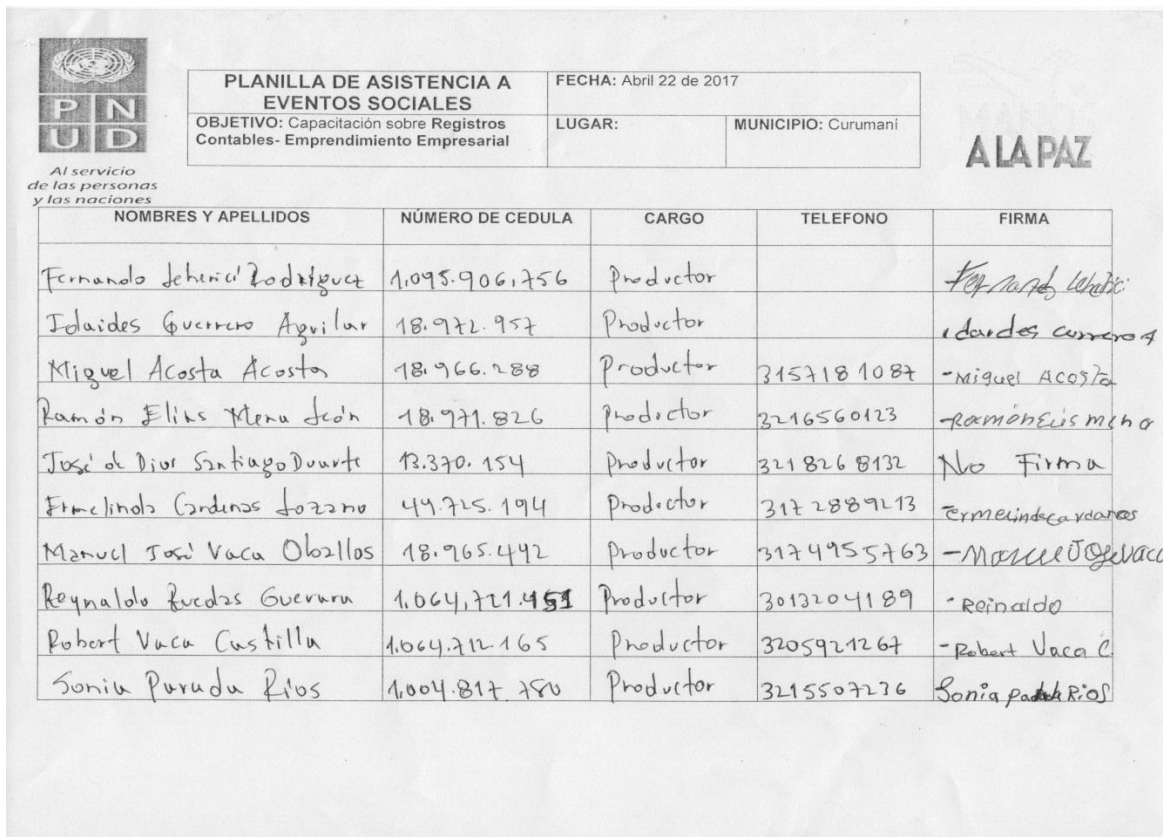 PLANILLA DE ASISTENCIA A
EVENTOS SOCIALES
FECHA: Abril 22 de 2017
OBJETIVO: Capacitación sobre Registros
Contables- Emprendimiento Empresarial
LUGAR: MUNICIPIO: Curumaní
PNUD
Al servicio
de las personas
y las naciones
A LA PAZ
NOMBRES Y APELLIDOS NÚMERO DE CEDULA CARGO TELEFONO FIRMA
Fernando Rodríguez 1.095.906,756 Productor Fernando
Iduides Guerrero Aguilar 18.972.957 Productor
Miguel Acosta Acosta 18.966.288 Productor 3157181087 -Miguel Acosta
Ramón Elias Mena León 18.971.826 Productor 3216560123 -Ramón Elis mena
José de Dios Santiago Duarte 13.370.154 Productor 321 826 8132 No Firma
Ermelinda Cardenas Lozano 49.725.194 Productor 317 2889213
Manuel José Vaca Oballos 18.965.442 Productor 3174955763 -Manuel Jose Vaca
Reynaldo Ruedas Guevara 1.064,721.451 Productor 3013204189 -Reinaldo
Robert Vaca Castilla 1.064.712.165 Productor 3205921267 -Robert Vaca C.
Sonia Parada Rios 1.004.817.780 Productor 3215507236 Sonia Rios